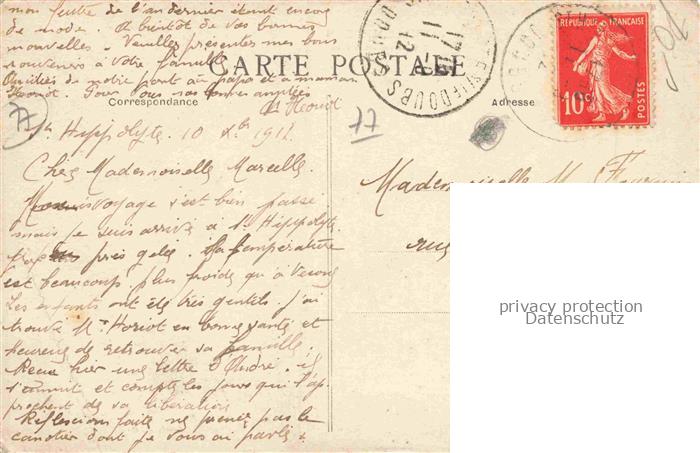 mon feutre de l'an dernier étant encore
de mode. A bientôt de vos bonnes
nouvelles. Veuillez présenter mes bons
souvenirs à votre famille
Amitiés de notre part au papa et a maman
Horiot. Pour vous nos
M Horiot
CARTE POSTALE
Correspondance
Adresse
77
77
RÉPUBLIQUE FRANÇAISE
10c
POSTES
17
11
12
DOUBS
St Hippolyte. 10 Xbre 1912.
Chère Mademoiselle Marcelle
Mon voyage s'est bien passé
mais je suis arrivé à St Hippolyte
près gelée. La température
est beaucoup plus froide qu'à Vesoul
Les enfants ont été très gentils. J'ai
trouvé Mr Horiot en bonne santé et
heureux de retrouver sa famille.
Reçu hier une lettre d'André. il
s'ennuie et compte les jours qui l'ap
prochent de sa libération
Réflexions faite ne prenez pas le
canotier dont je vous ai parlé
Mademoiselle M.
rue
privacy protection
Datenschutz